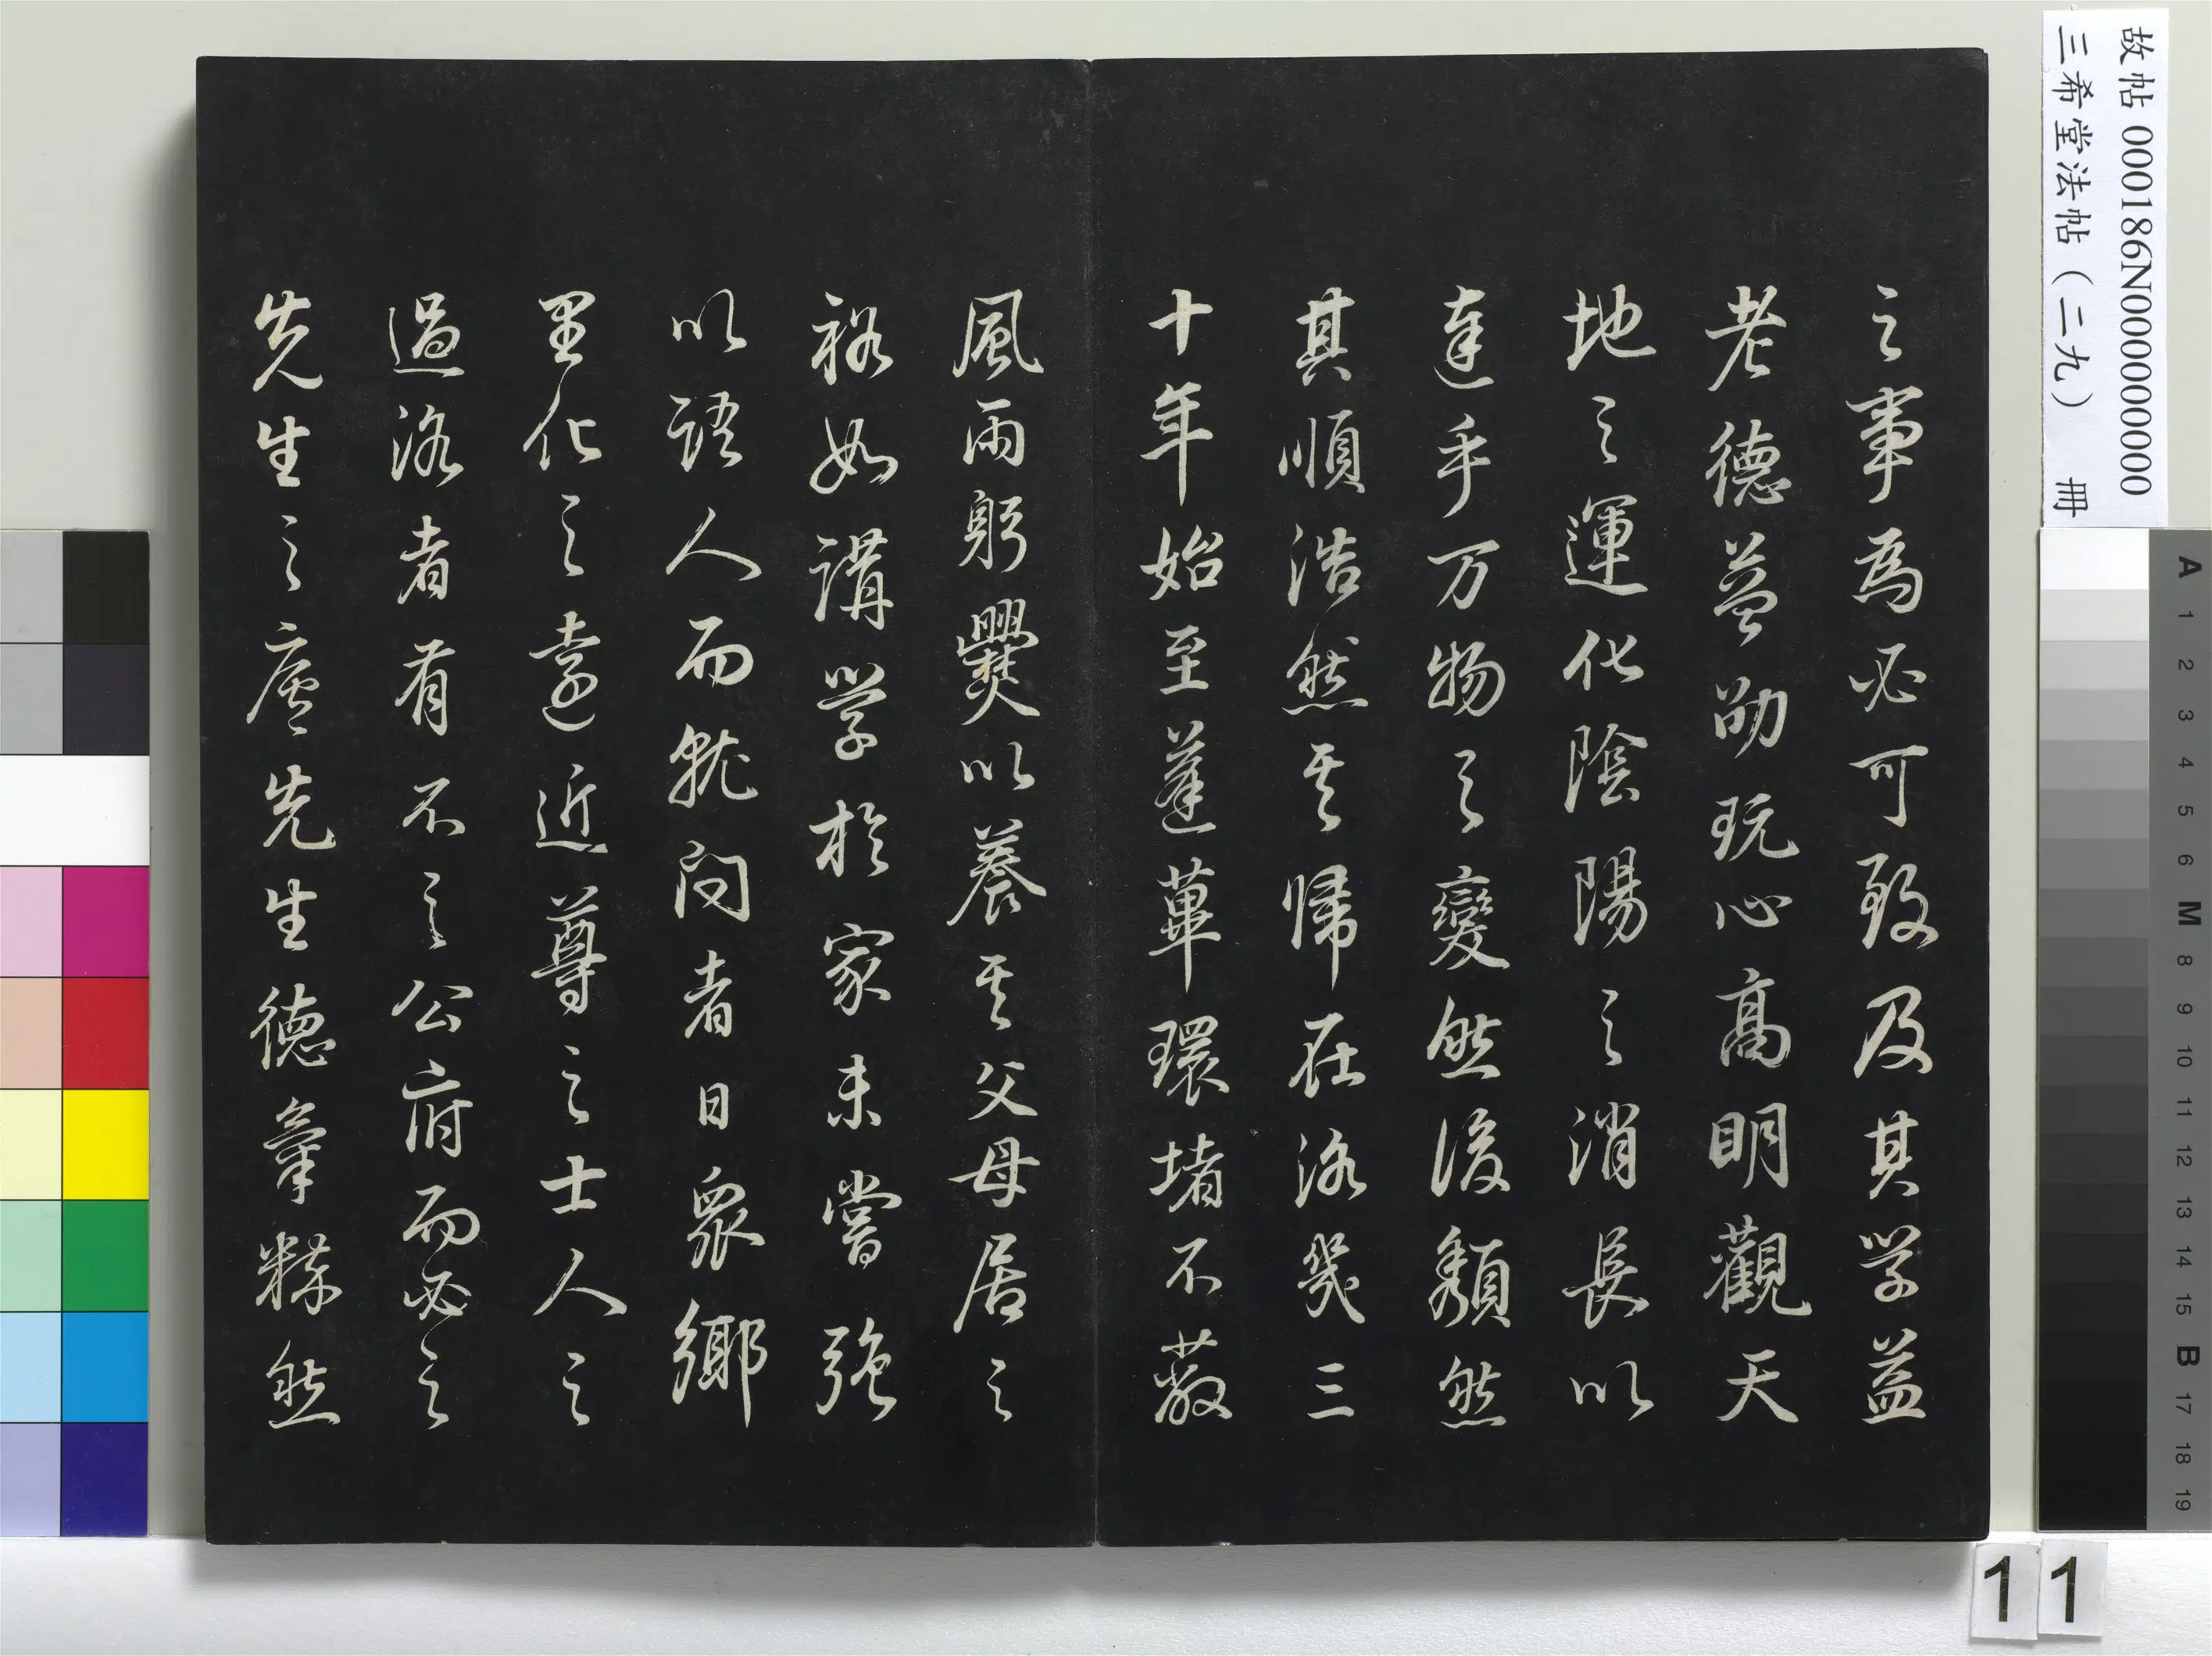 故帖 000186N000000000
三希堂法帖（二九） 冊
之事為必可致及其学益
老德益劭玩心高明觀天
地之運化陰陽之消長以
達乎万物之變然後頹然
其順浩然其帰在洛幾三
十年始至蓬蓽環堵不蔽
風雨躬爨以養其父母居之
裕如講学於家未嘗強
以語人而就問者日眾鄉
里化之遠近尊之士人之
過洛者有不之公府而必之
先生之廬先生德氣粹然
A 1 2 3 4 5 6 M 8 9 10 11 12 13 14 15 B 17 18 19
11